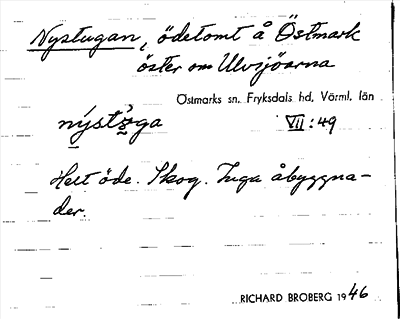 Nystugan, ödetomt å Östmark
öster om Ulvsjöarna
Östmarks sn. Fryksdals hd, Värml. län
VII:49
Helt öde. Skog. Inga åbyggna-
der.
RICHARD BROBERG 1946